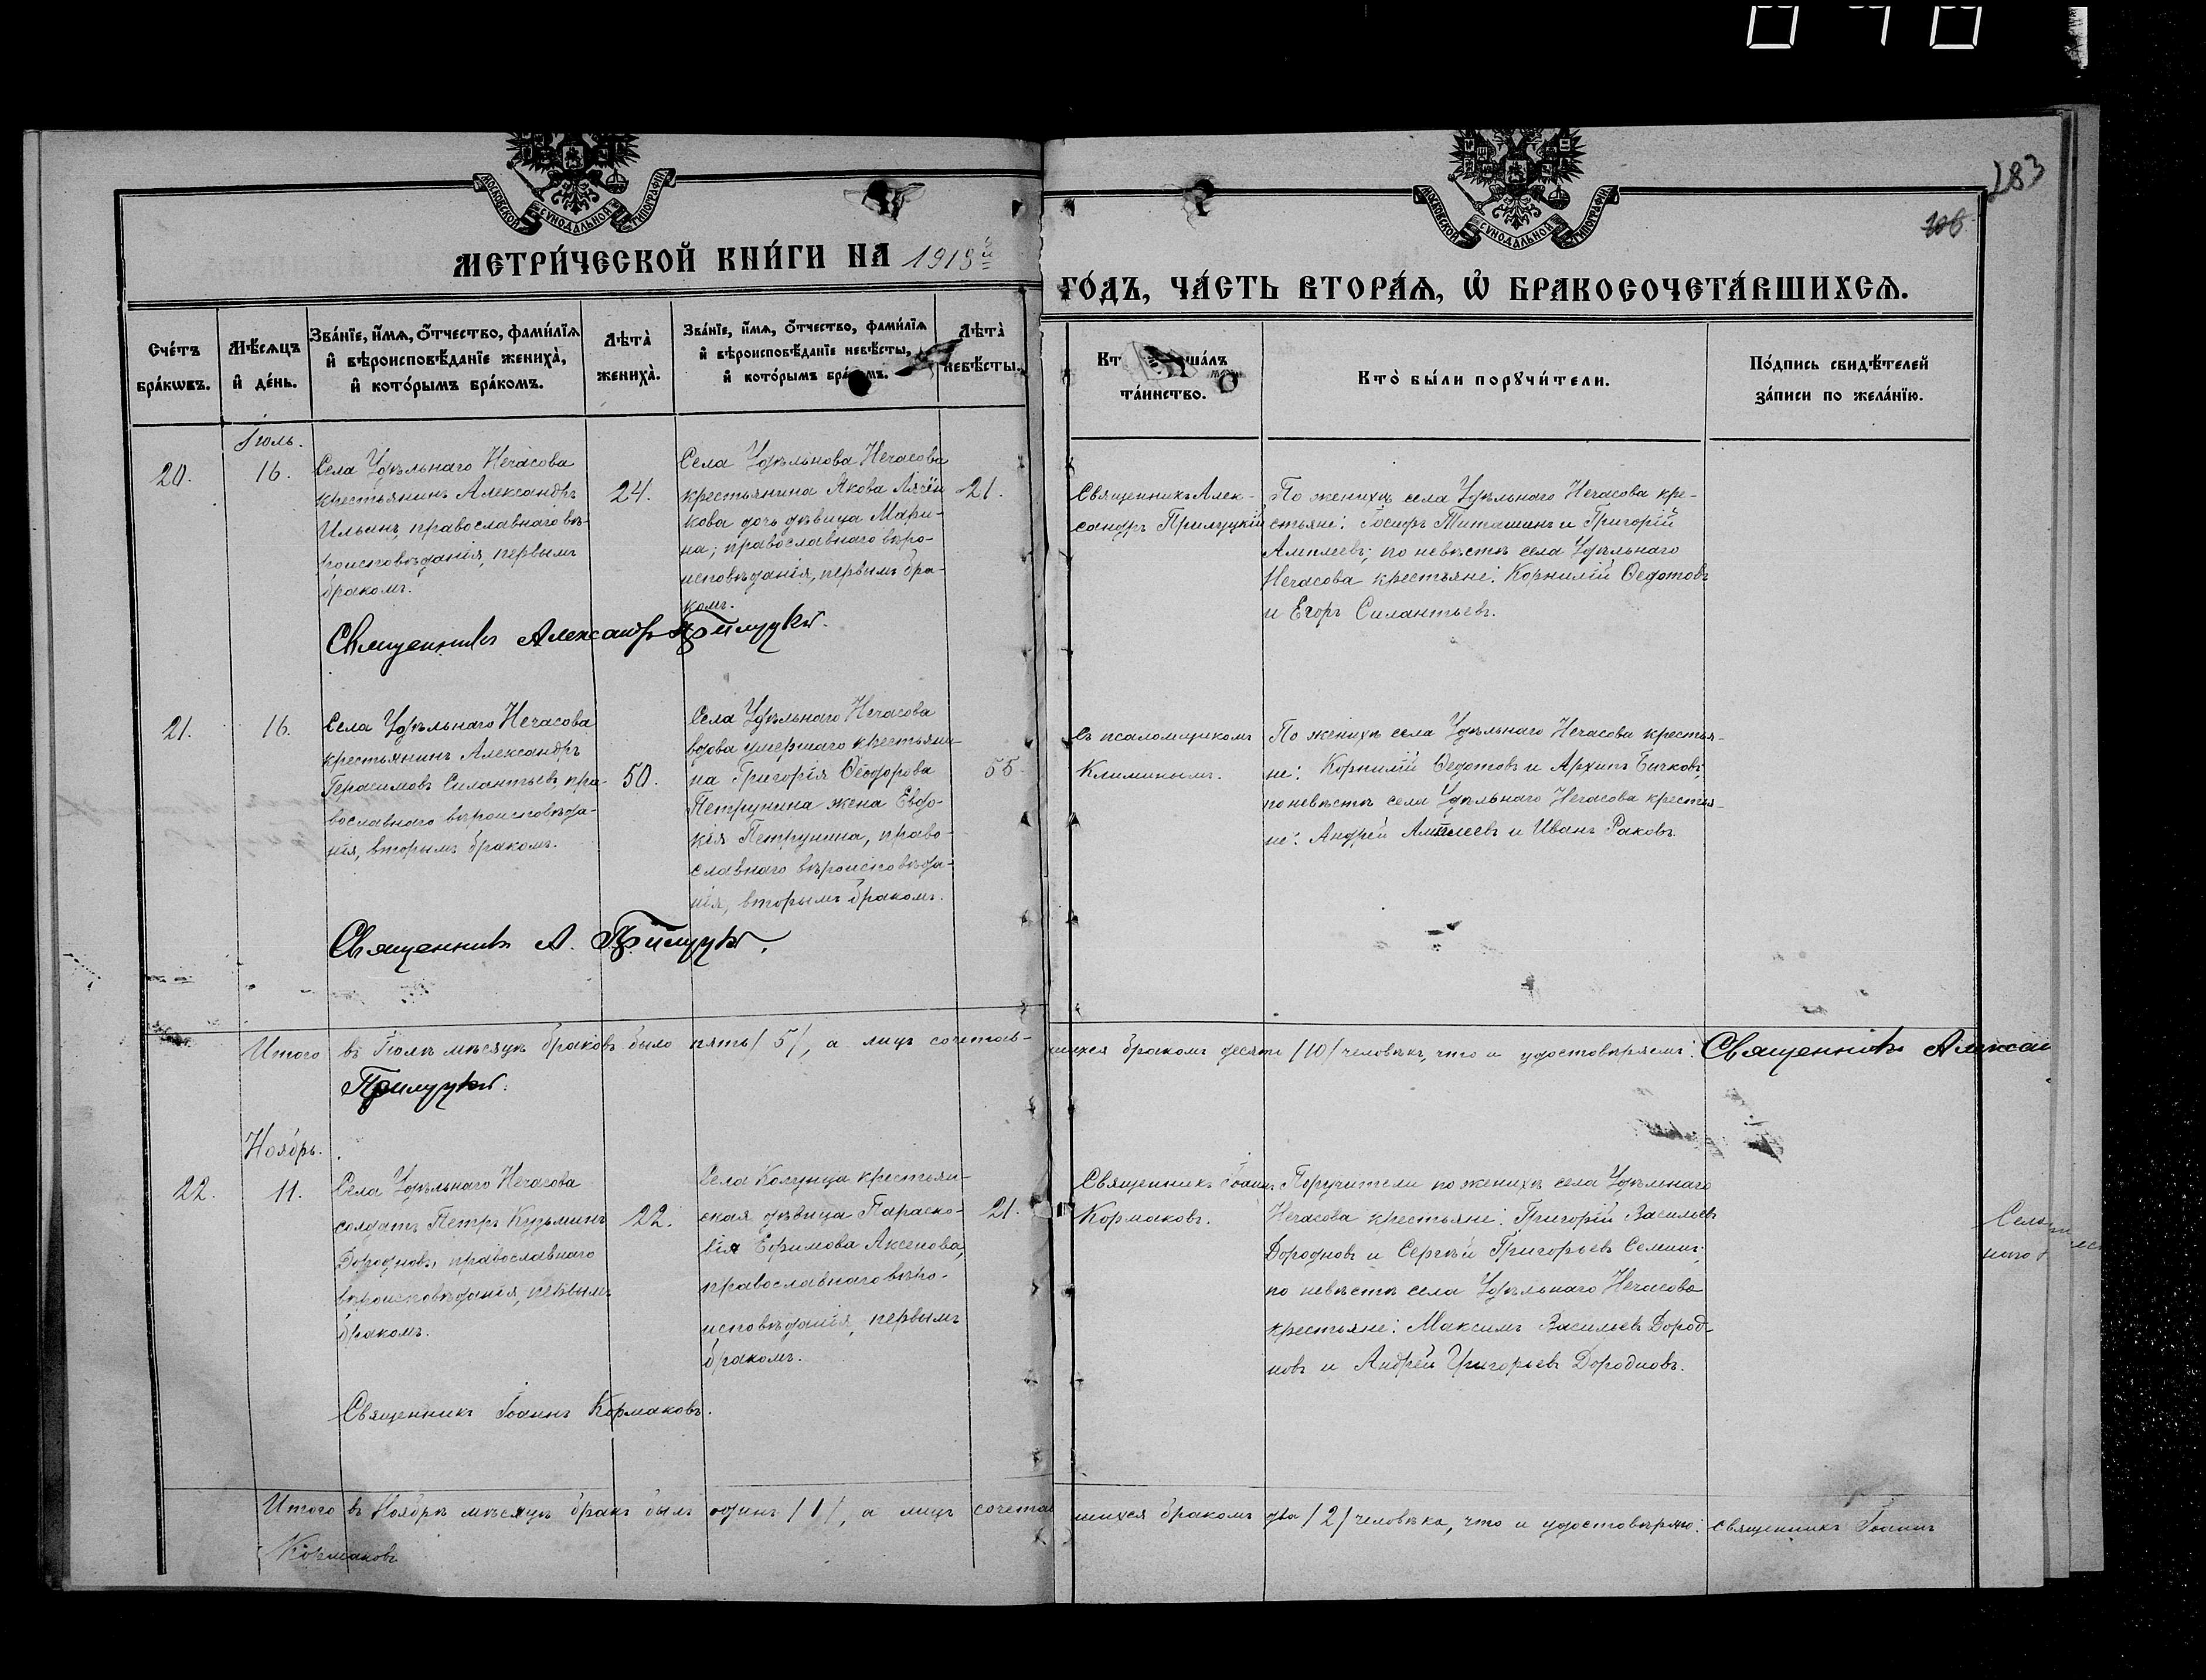 283
МОСКОВСКОЙ СУНОДАЛЬНОЙ ТИПОГРАФІИ
МОСКОВСКОЙ СУНОДАЛЬНОЙ ТИПОГРАФІИ
МЕТРИ́ЧЕСКОЙ КНИ́ГИ НА
ГО́ДЪ, ЧА́СТЬ ВТОРА́Ѧ, Ѡ҆ БРАКОСОЧЕТА́ВШИХСѦ.
Сче́тъ бра́кѡвъ.
Мѣ́сѧцъ и҆ де́нь.
Зва́нїе, и҆́мѧ, ѻ҆́тчество, фами́лїѧ
и҆ вѣроисповѣ́данїе жениха̀,
и҆ кото́рымъ бра́комъ.
Лѣта̀ жениха̀.
Зва́нїе, и҆́мѧ, ѻ҆́тчество, фами́лїѧ
и҆ вѣроисповѣ́данїе невѣ́сты,
и҆ кото́рымъ
Лѣта̀ невѣ́сты.
та́инство.
Кто̀ бы́ли порꙋчи́тели.
По́дпись свидѣ́телей
за́писи по жела́нїю.
Іюль.
20.
16.
Села Удѣльнаго Нечасова
крестьянинъ Александръ
Ильинъ, православнаго вѣ-
роисповѣданія, первымъ
бракомъ.
24.
Села Удѣльнова Нечасова
крестьянина Якова
кова дочь дѣвица Мари-
на; православнаго вѣро-
исповѣданія, первымъ бра-
комъ.
21.
Священникъ Алек-
сандръ Прилуцкій
По женихѣ села Удѣльнаго Нечасова кре-
стьяне: Іосифъ Титашинъ и Григорій
Амплеевъ; по невѣстѣ села Удѣльнаго
Нечасова крестьяне: Корнилій Ѳедотовъ
и Егоръ Силантьевъ.
Священникъ Александръ Прилуцкій.
21.
16.
Села Удѣльнаго Нечасова
крестьянинъ Александръ
Герасимовъ Силантьевъ, пра-
вославнаго вѣроисповѣда-
нія, вторымъ бракомъ.
50.
Села Удѣльнаго Нечасова
вдова умершаго крестьяни-
на Григорія Ѳеодорова
Петрунина жена Евдо-
кія Петрунина, право-
славнаго вѣроисповѣда-
нія, вторымъ бракомъ.
55.
съ псаломщикомъ
Климинымъ.
По женихѣ села Удѣльнаго Нечасова крестья-
не: Корнилій Ѳедотовъ и Архипъ Бычковъ;
по невѣстѣ села Удѣльнаго Нечасова крестья-
не: Андрей Амплеевъ и Иванъ Раковъ.
Священникъ А. Прилуцкій.
Итого въ Іюлѣ мѣсяцѣ браковъ было пять /5/, а лицъ сочетав-
шихся бракомъ десять /10/ человѣкъ, что и удостовѣряемъ: Священникъ Алексан
Прилуцкій.
Ноябрь.
22.
11.
Села Удѣльнаго Нечасова
солдатъ Петръ Кузьминъ
Дородновъ, православнаго
вѣроисповѣданія, первымъ
бракомъ.
22.
Села Колунца крестьян-
ская дѣвица Параске-
вія Ефимова Аксенова,
православнаго вѣро-
исповѣданія, первымъ
бракомъ.
21.
Священникъ Іоаннъ
Кормаковъ.
Поручители по женихѣ села Удѣльнаго
Нечасова крестьяне: Григорій Васильевъ
Дородновъ и Сергѣй Григорьевъ Семинъ;
по невѣстѣ села Удѣльнаго Нечасова
крестьяне: Максимъ Васильевъ Дород-
новъ и Андрей Григорьевъ Дородновъ.
Священникъ Іоаннъ Кормаковъ.
Итого въ Ноябрѣ мѣсяцѣ бракъ былъ одинъ /1/, а лицъ сочетав
шихся бракомъ два /2/ человѣка, что и удостовѣряю: священникъ Іоаннъ
Кормаковъ